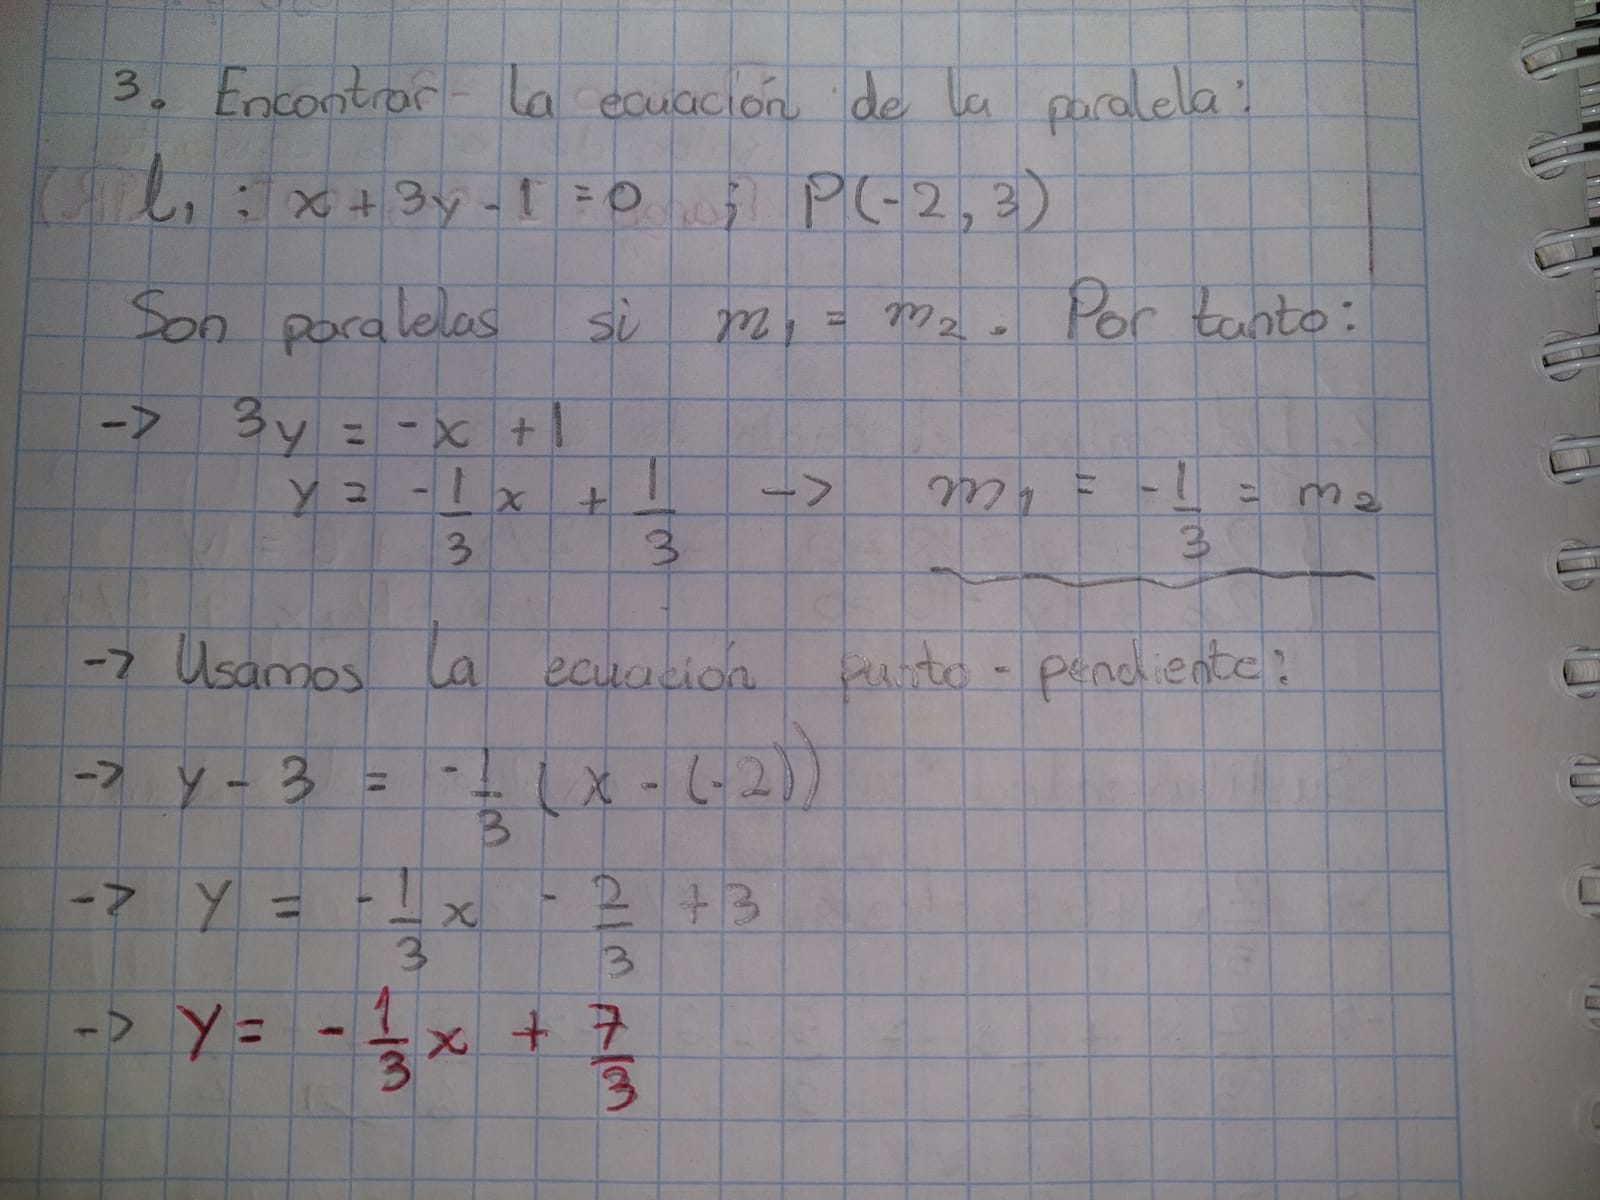 3. Encontrar la ecuación de la paralela:
l₁ : x + 3y - 1 = 0 ; P(-2, 3)
Son paralelas si m₁ = m₂. Por tanto:
-> 3y = -x + 1
y = -1/3 x + 1/3 -> m₁ = -1/3 = m₂
-> Usamos la ecuación punto - pendiente:
-> y - 3 = -1/3 (x - (-2))
-> y = -1/3 x - 2/3 + 3
-> y = -1/3 x + 7/3